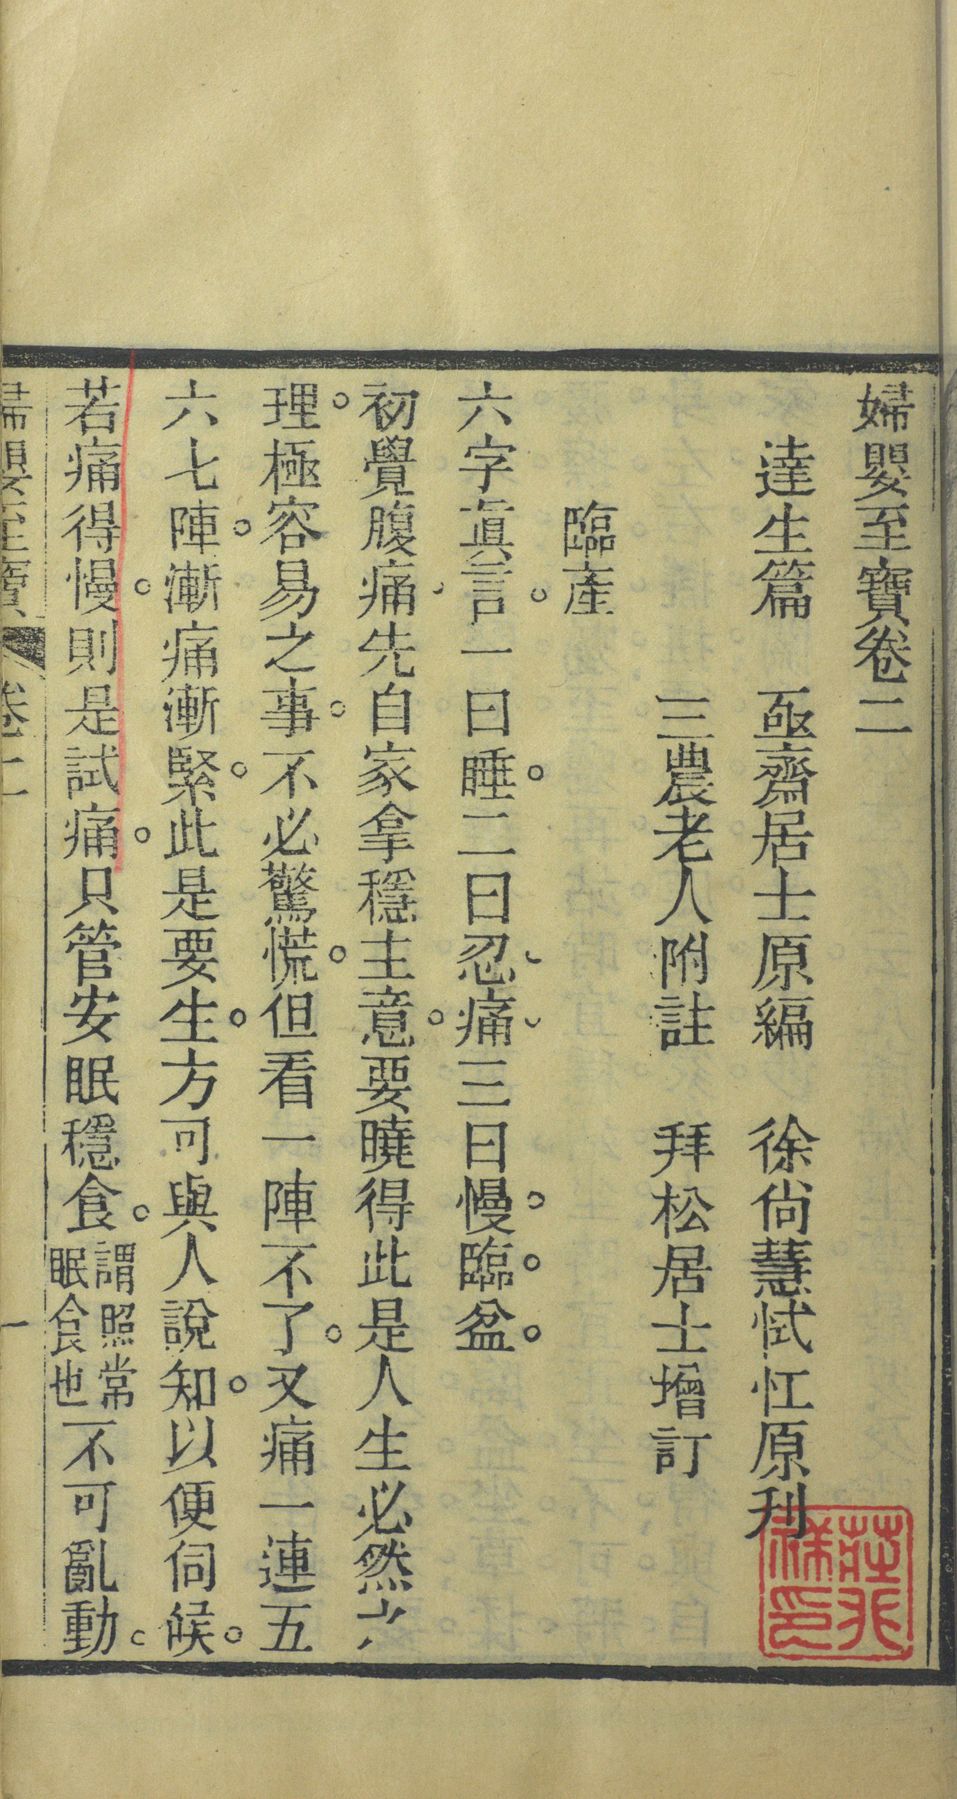 婦嬰至寶卷二
達生篇 亟齋居士原編 徐尙慧 原刋
三農老人附註 拜松居士增訂
臨產
六字眞言一曰睡二曰忍痛三曰慢臨盆
初覺腹痛先自家拿穩主意要曉得此是人生必然之
理極容易之事不必驚慌但看一陣不了又痛一連五
六七陣漸痛漸緊此是要生方可與人說知以便伺候
若痛得慢則是試痛只管安眠穩食謂照常眠食也不可亂動
婦嬰至寶 卷二 一